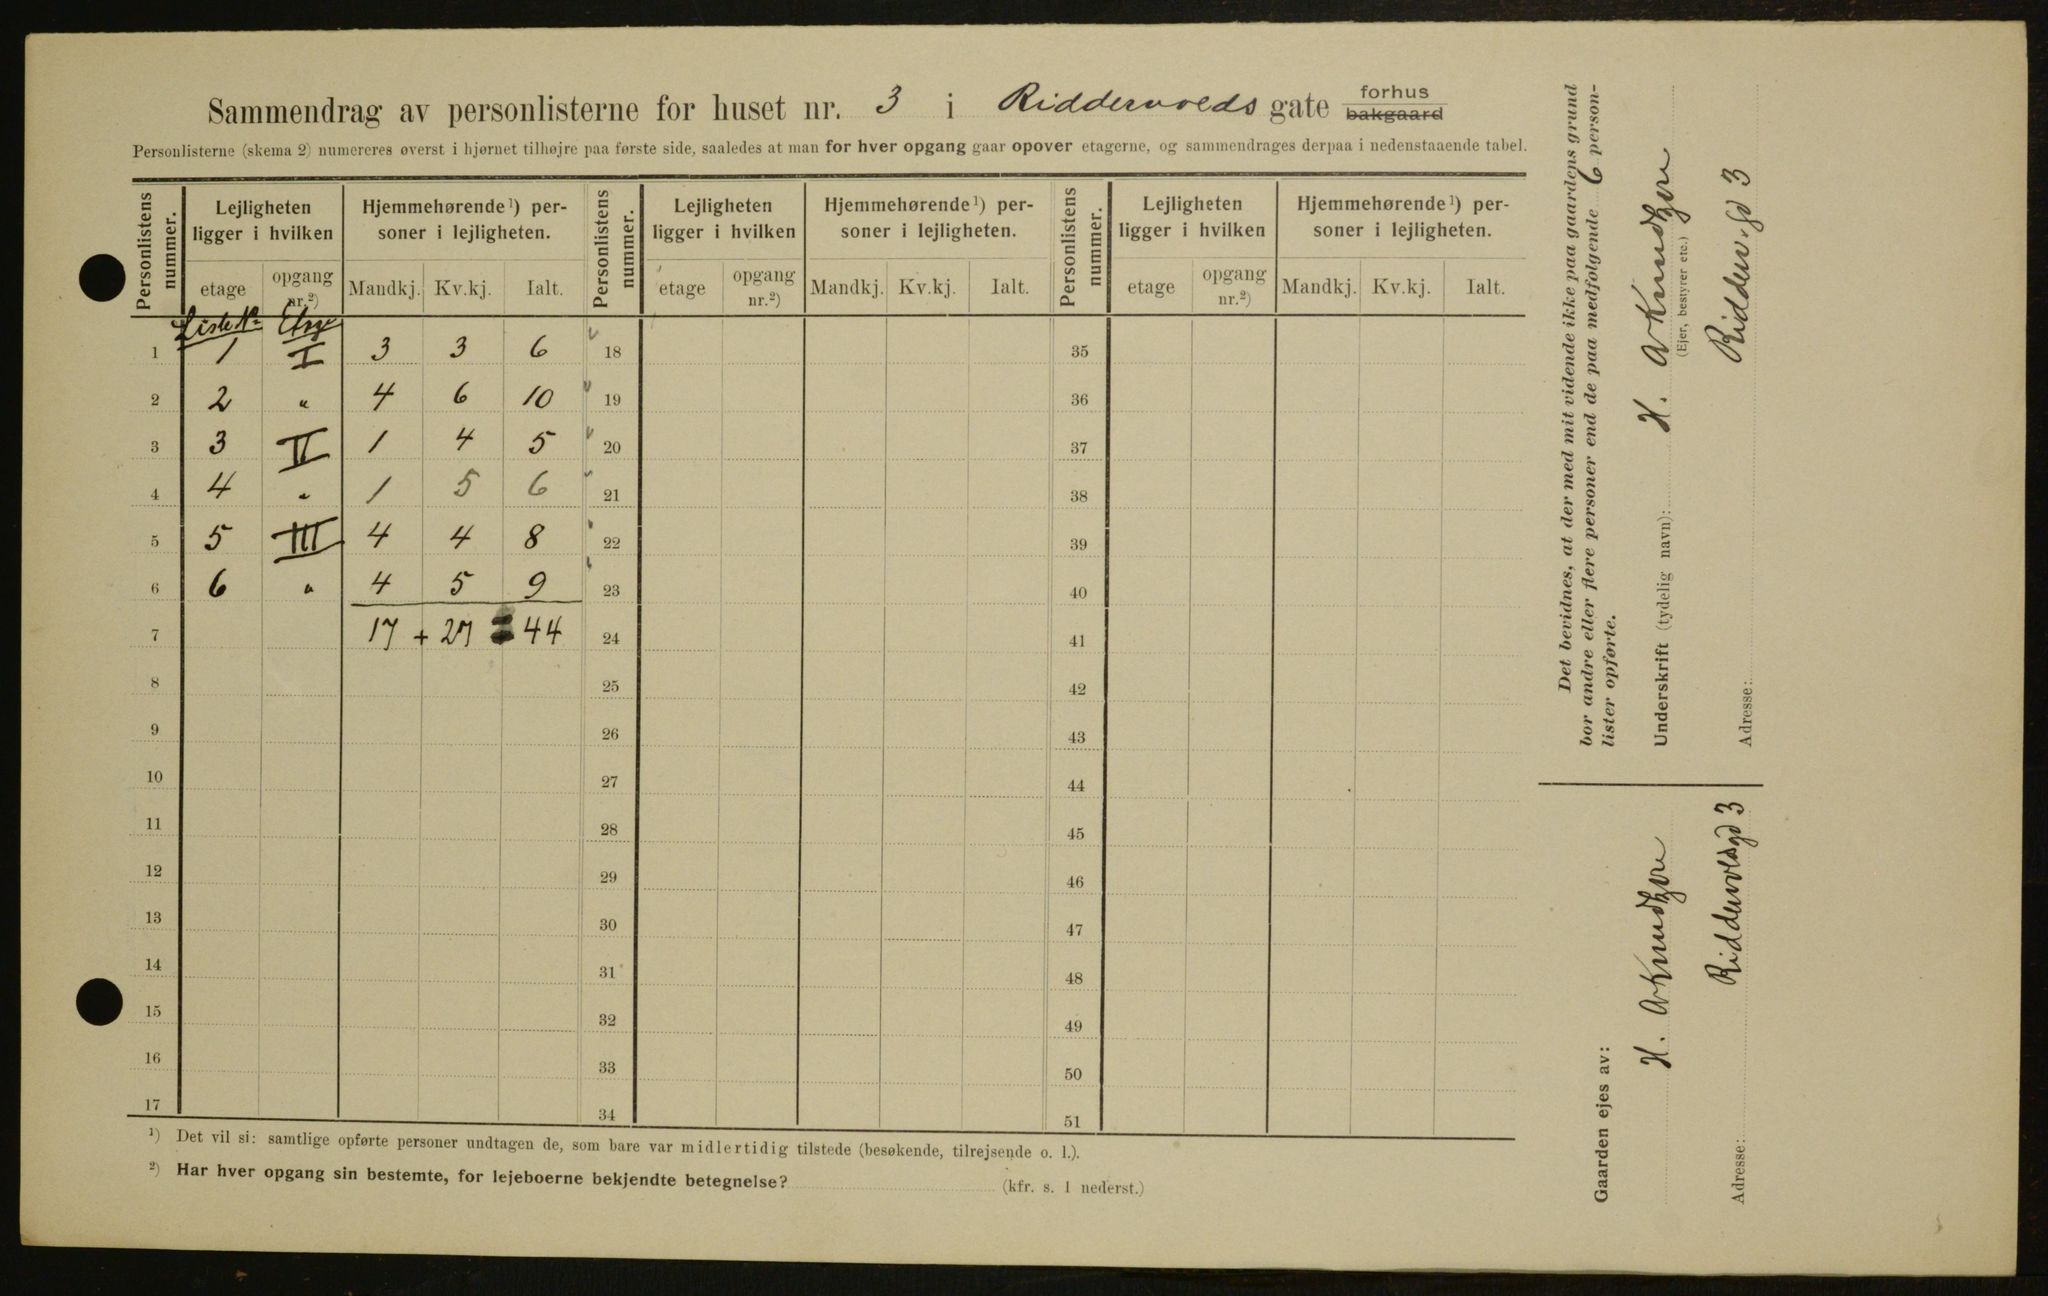 Sammendrag av personlisterne for huset nr. 3 i Riddervolds gate forhus bakgaard
Personlisterne (skema 2) numereres øverst i hjørnet tilhøjre paa første side, saaledes at man for hver opgang gaar opover etagerne, og sammendrages derpaa i nedenstaaende tabel.
Personlistens nummer. Lejligheten ligger i hvilken Hjemmehørende ¹) personer i lejligheten. Personlistens nummer. Lejligheten ligger i hvilken Hjemmehørende ¹) personer i lejligheten. Personlistens nummer. Lejligheten ligger i hvilken Hjemmehørende ¹) personer i lejligheten.
etage opgang nr.²) Mandkj. Kv.kj. Ialt. etage opgang nr.²) Mandkj. Kv.kj. Ialt. etage opgang nr.²) Mandkj. Kv.kj. Ialt.
Liste No Etage
1 1 I 3 3 6 18 35
2 2 " 4 6 10 19 36
3 3 II 1 4 5 20 37
4 4 " 1 5 6 21 38
5 5 III 4 4 8 22 39
6 6 " 4 5 9 23 40
7 17 + 27 = 44 24 41
8 25 42
9 26 43
10 27 44
11 28 45
12 29 46
13 30 47
14 31 48
15 32 49
16 33 50
17 34 51
¹) Det vil si: samtlige opførte personer undtagen de, som bare var midlertidig tilstede (besøkende, tilrejsende o. l.).
²) Har hver opgang sin bestemte, for lejeboerne bekjendte betegnelse? (kfr. s. 1 nederst.)
Det bevidnes, at der med mit vidende ikke paa gaardens grund
bor andre eller flere personer end de paa medfølgende 6 person-
lister opførte.
Underskrift (tydelig navn): H. A Knudtzen
(Ejer, bestyrer etc.)
Adresse: Dridderv.gd 3
Gaarden ejes av:
H. A Knudtzen
Adresse: Riddervoldsgd 3